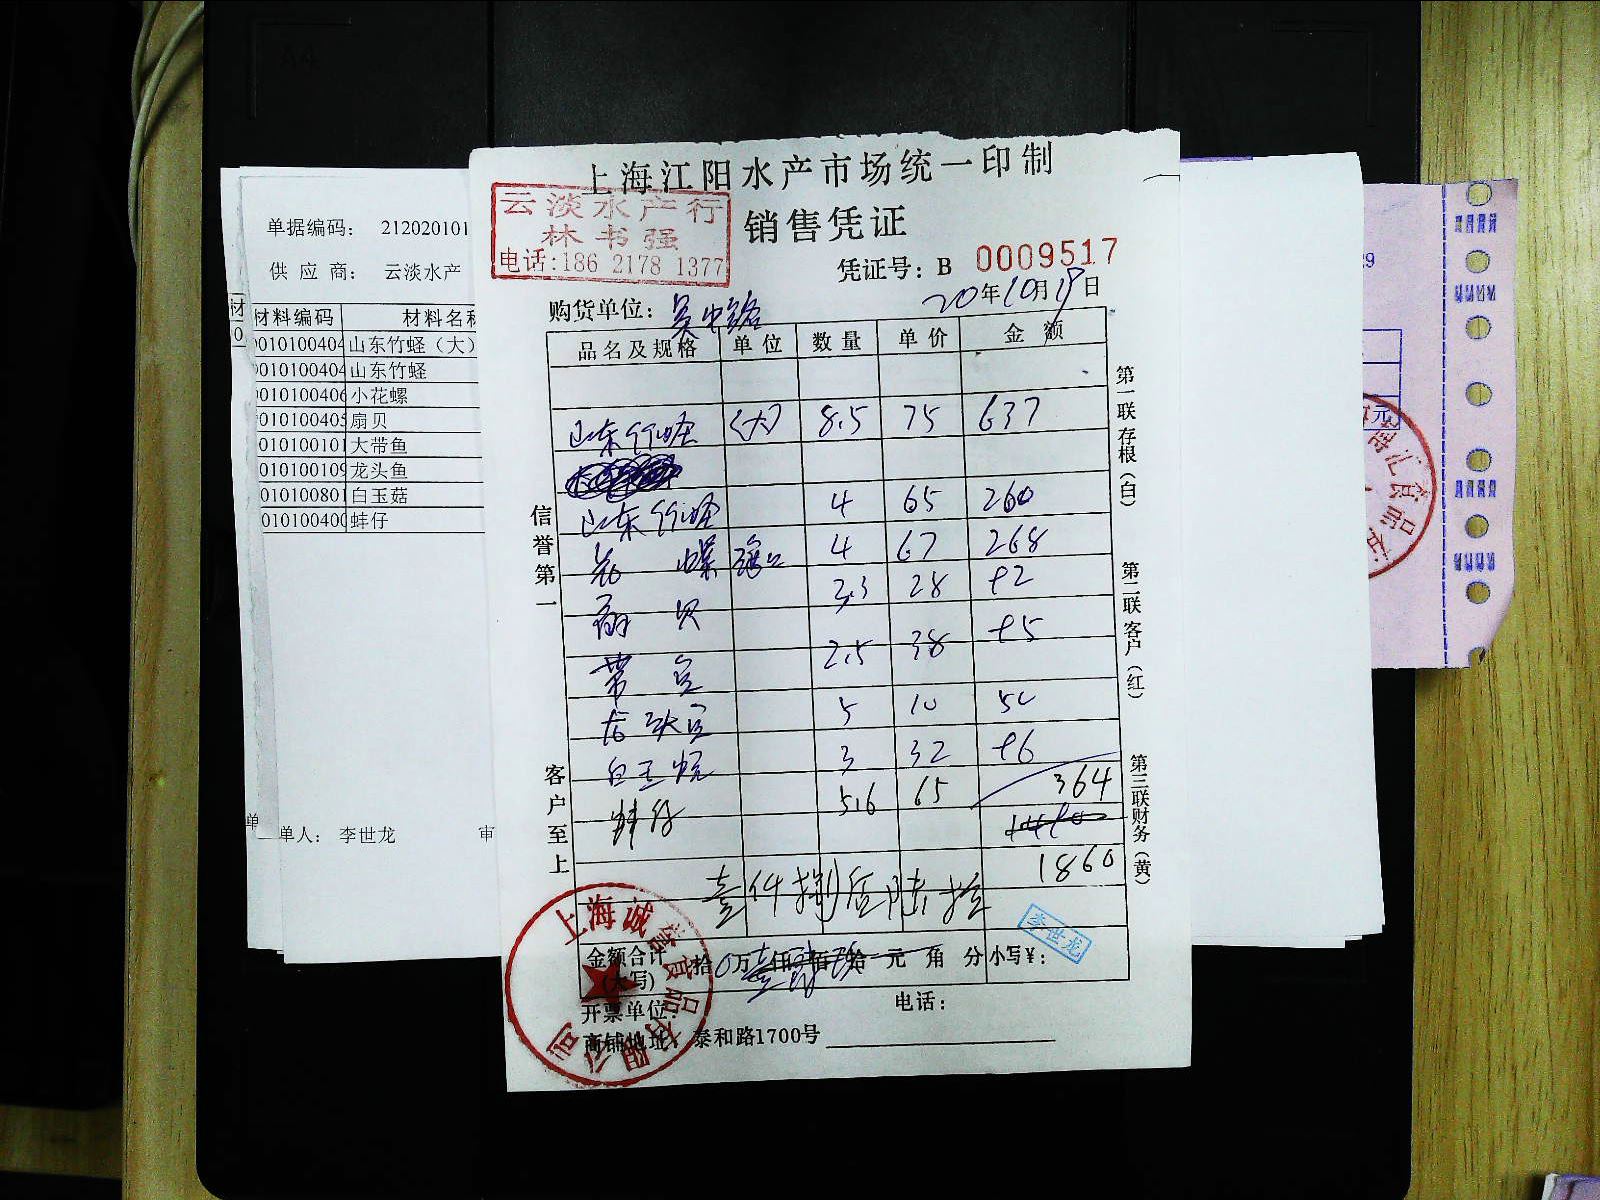 上海江阳水产市场统一印制
云淡水产行
林书强
电话:186 2178 1377
销售凭证
凭证号: B 0009517
购货单位: 吴中路
20年10月19日
品名及规格 单位 数量 单价 金额
山东竹蛏 (大) 8.5 75 637
山东竹蛏 4 65 260
花螺 4 67 268
扇贝 3.3 28 92
带鱼 2.5 38 95
龙头鱼 5 10 50
白玉菇 3 32 96
蚌仔 5.6 65 364
1860
壹仟捌佰陆拾
李世龙
金额合计 拾 万 仟 佰 拾 元 角 分 小写¥:
(大写)
开票单位:
电话:
商铺地址: 泰和路1700号
信誉第一
客户至上
第一联存根(白)
第二联客户(红)
第三联财务(黄)
上海诚誉食品有限公司
单据编码: 212020101
供应商: 云淡水产
材料编码 材料名称
010100404 山东竹蛏(大)
010100404 山东竹蛏
010100406 小花螺
010100405 扇贝
010100101 大带鱼
010100109 龙头鱼
010100801 白玉菇
010100400 蚌仔
单人: 李世龙 审
29
元